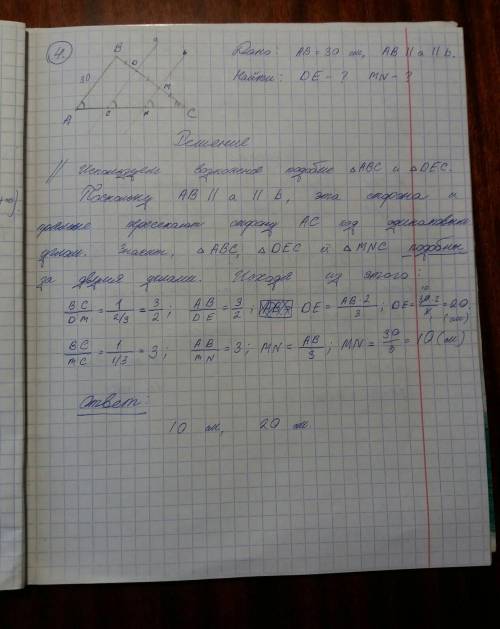 4.
a
b
B
D
30
M
A
E
N
C
Дано: AB = 30 см, AB || a || b.
Найти: DE - ? MN - ?
Решение
// Используем возможное подобие △ABC и △DEC.
Поскольку AB || a || b, эта сторона и
прямые пересекают сторону AC под одинаковым
углом. Значит, △ABC, △DEC и △MNC подобны
за двумя углами. Исходя из этого:
BC/DM = 1/(2/3) = 3/2; AB/DE = 3/2; DE = AB·2/3; DE = = 20 (см)
BC/MC = 1/(1/3) = 3; AB/MN = 3; MN = AB/3; MN = 30/3 = 10 (см)
Ответ:
10 см, 20 см